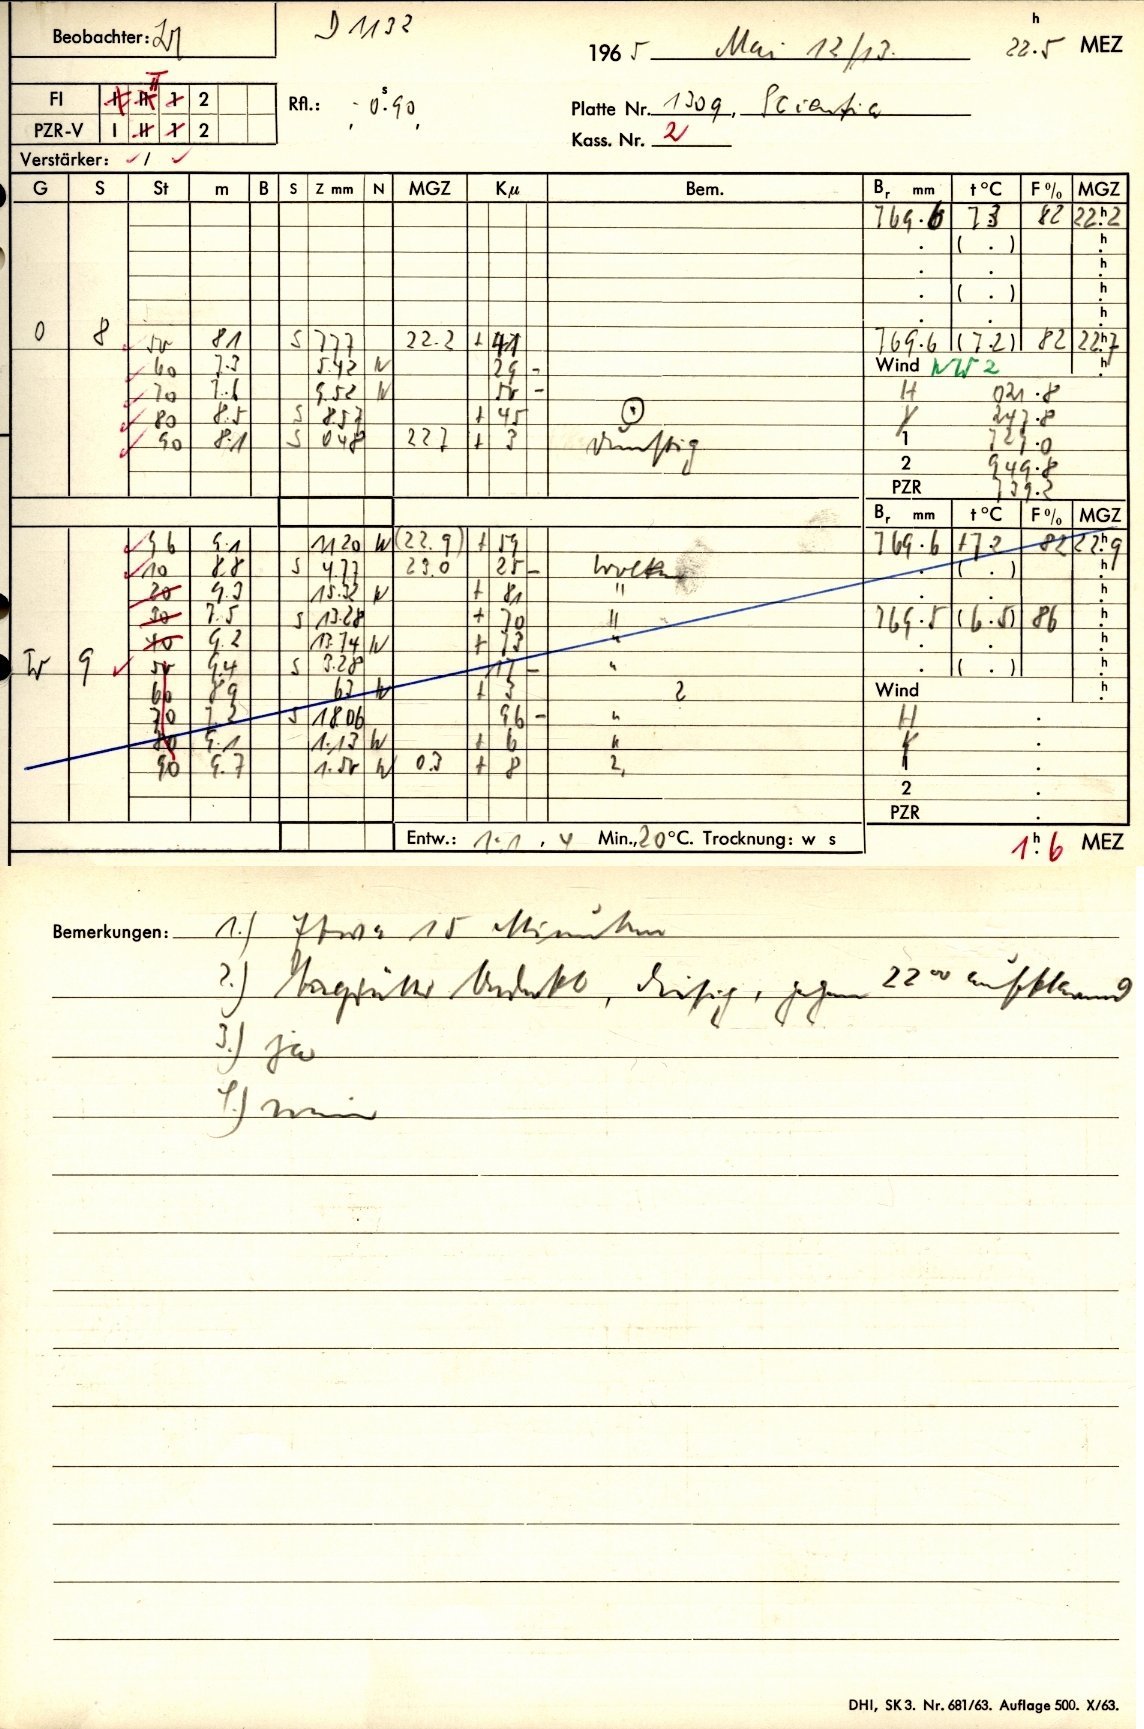 D 1132
Beobachter:
1965 Mai 12/13. 22.5 h MEZ
FI I II 1 2
PZR-V I II 1 2
Rfl.: - 0.90 s
Platte Nr. 1309, Scientia
Kass. Nr. 2
Verstärker: 1
G S St m B S Z mm N MGZ Kμ Bem. Br mm t °C F % MGZ
769.6 7.3 82 22.2 h
( . ) h
. . h
( . ) h
. . h
0 8 50 8.1 S 7.77 22.2 + 41 769.6 (7.2) 82 22.7 h
60 7.3 5.42 W 29 - Wind NW 2 h
70 7.6 9.52 W 50 - H 021.8
80 8.5 S 8.57 + 45 1 247.8
90 8.1 S 0.48 22.7 + 3 dunstig 1 729.0
2 949.8
PZR 739.2
Br mm t °C F % MGZ
W 9 9b 9.1 11.20 W (22.9) + 59 769.6 +7.2 82 22.9 h
10 8.8 S 4.77 23.0 25 - Wolken ( . ) h
20 9.3 15.32 W + 81 " . . h
30 7.5 S 13.28 + 70 " 769.5 (6.5) 86 h
40 9.2 13.74 W + 73 " . . h
50 9.4 S 3.28 17 - " ( . ) h
60 8.9 63 W + 3 2 Wind h
70 7.2 S 18.06 96 - " H .
80 9.1 1.13 W + 6 "
90 9.7 1.50 W 0.3 + 8 2, 1 .
2 .
PZR .
Entw.: 1:1, 4 Min., 20 °C. Trocknung: w s 1.6 h MEZ
Bemerkungen: 1.) Etwa 15 Minuten
2.) Tagsüber bedeckt, diesig, gegen 22 00 aufklarend
3.) ja
4.) nein
DHI, SK 3. Nr. 681/63. Auflage 500. X/63.